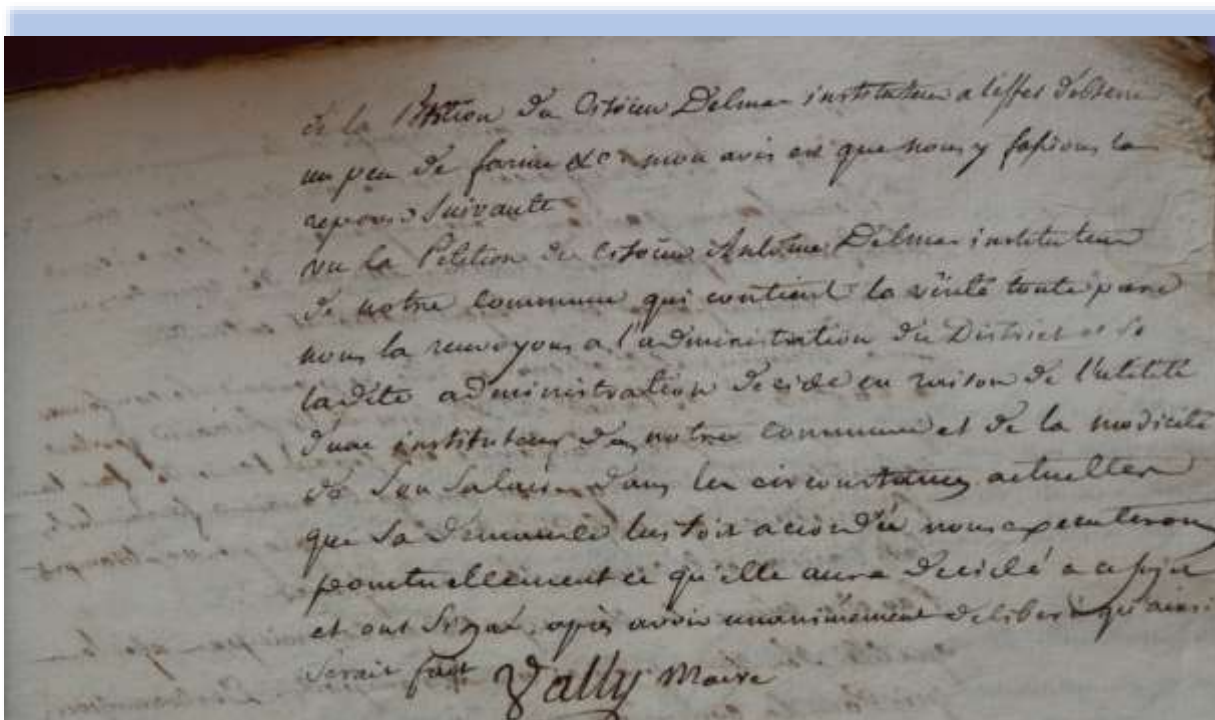 de la Pétition du Citoïen Delmas instituteur a leffet d'obtenir
un peu de farine &c mon avis est que nous y fassions la
reponse Suivante
vu la Petition du citoïen Antoine Delmas instituteur
de notre commune qui contient la vérité toute pure
nous la renvoyons a l'administration du District et si
ladite administration decide en raison de l'utilité
d'un instituteur dans notre commune et de la modicité
de Son Salaire dans les circonstances actuelles
que Sa demande lui soit accordée nous executerons
ponctuellement ce qu'elle aura decidé a ce sujet
et ont Signé, après avoir unanimement deliberé qu'ainsi
Serait fait Vally Maire